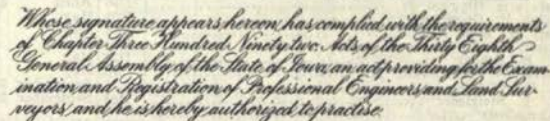 Whose signature appears hereon, has complied with the requirements
of Chapter Three Hundred Ninety two. Acts of the Thirty Eighth
General Assembly of the State of Iowa, an act providing for the Exam-
ination and Registration of Professional Engineers and Land Sur-
veyors, and he is hereby authorized to practise